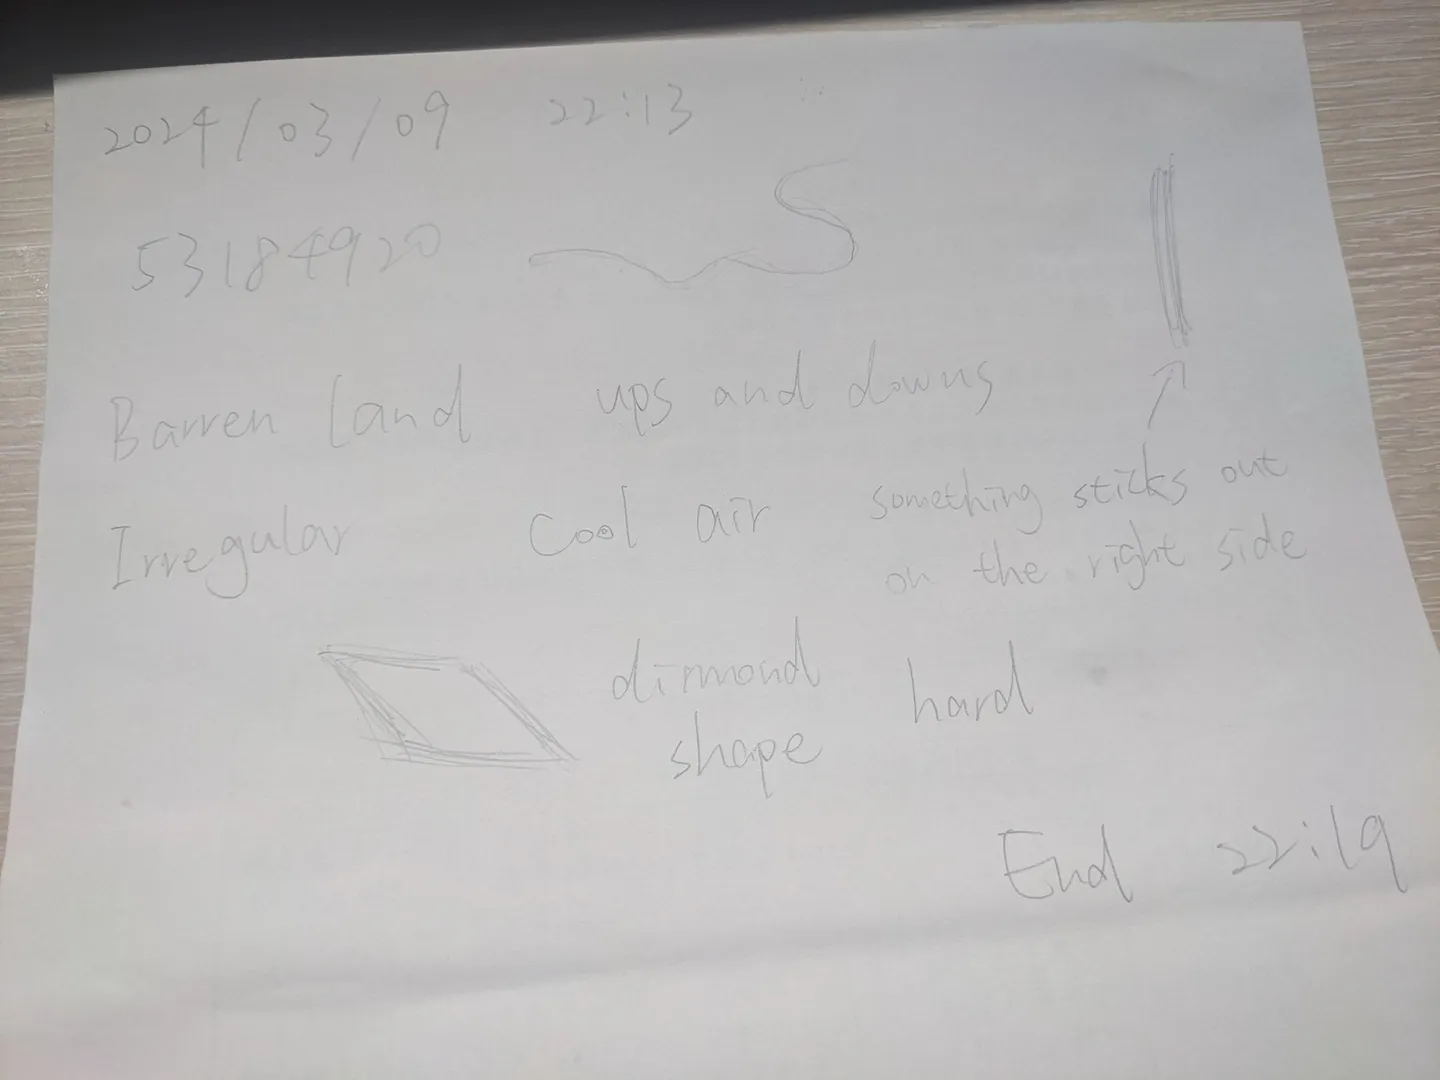 2024/03/09 22:13
53184920
Barren land ups and downs
Irregular Cool air something sticks out
on the right side
dirmond hard
shape
End 22:19